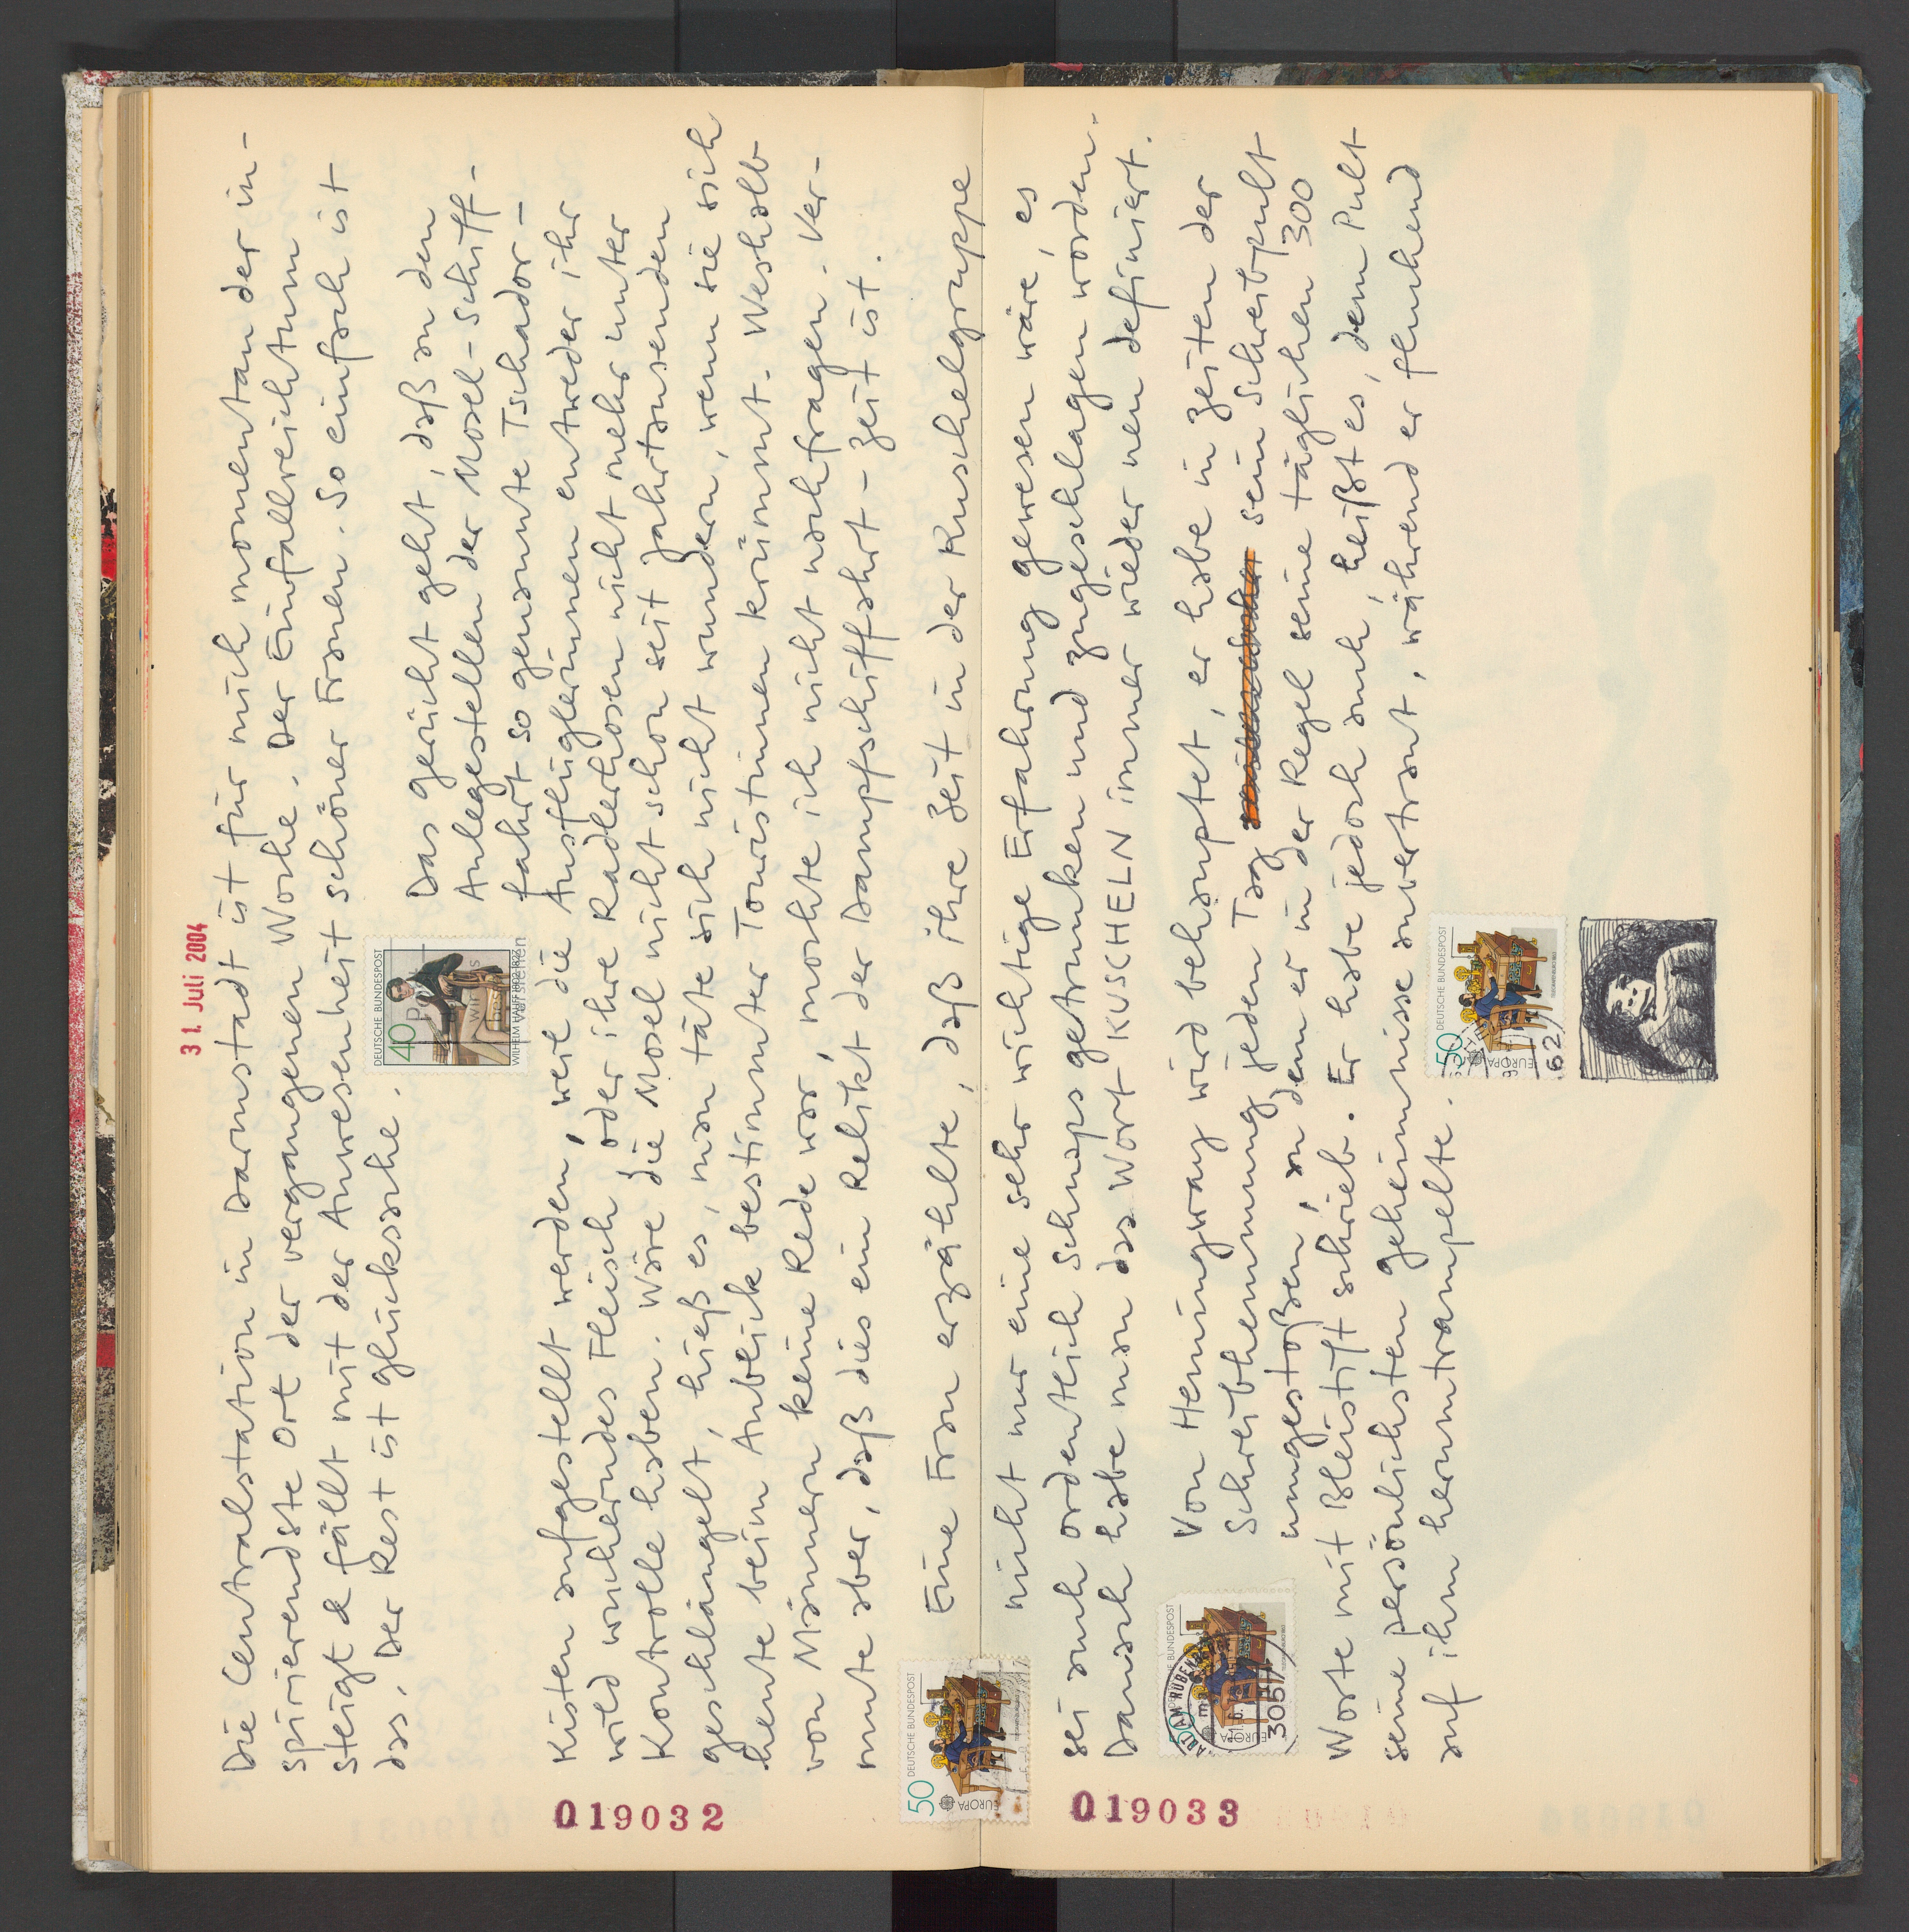 31. Juli 2004
Die Centralstation in Darmstadt ist für mich momentan der in-
spirierendste Ort der vergangenen Woche. Der Einfallreichtum
steigt & fällt mit der Anwesenheit schöner Frauen. So einfach ist
das. Der Rest ist Glücksache.
DEUTSCHE BUNDESPOST
40
WILHELM HAUFF 1802-1827
Das Gerücht geht, daß an den
Anlegestellen der Mosel-Schiff-
fahrt so genannte Tschador-
Kisten aufgestellt werden, weil die Ausflüglerinnen entweder ihr
wild wucherndes Fleisch oder ihre Radlerhosen nicht mehr unter
Kontrolle haben. Wäre die Mosel nicht schon seit Jahrtausenden
geschlängelt, hieß es, man täte sich nicht wundern, wenn sie sich
heute beim Anblick bestimmter Touristinnen krümmt. Weshalb
von Männern keine Rede war, mochte ich nicht nachfragen. Ver-
mute aber, daß dies ein Relikt der Dampfschiffahrt-Zeit ist.
50 DEUTSCHE BUNDESPOST
EUROPA
Eine Frau erzählte, daß ihre Zeit in der Kuschelgruppe
nicht nur eine sehr wichtige Erfahrung gewesen wäre, es
sei auch ordentlich Schnaps getrunken und zugeschlagen worden.
Danach habe man das Wort KUSCHELN immer wieder neu definiert.
50 DEUTSCHE BUNDESPOST
EUROPA
3057
Von Hemingway wird behauptet, er habe in Zeiten der
Schreibhemmung jeden Tag sein Schreibpult
umgestoßen, an dem er in der Regel seine täglichen 300
Worte mit Bleistift schrieb. Er habe jedoch auch, heißt es, dem Pult
seine persönlichsten Geheimnisse anvertraut, während er fluchend
auf ihm herumtrampelte.
50 DEUTSCHE BUNDESPOST
EUROPA
62
019032
019033